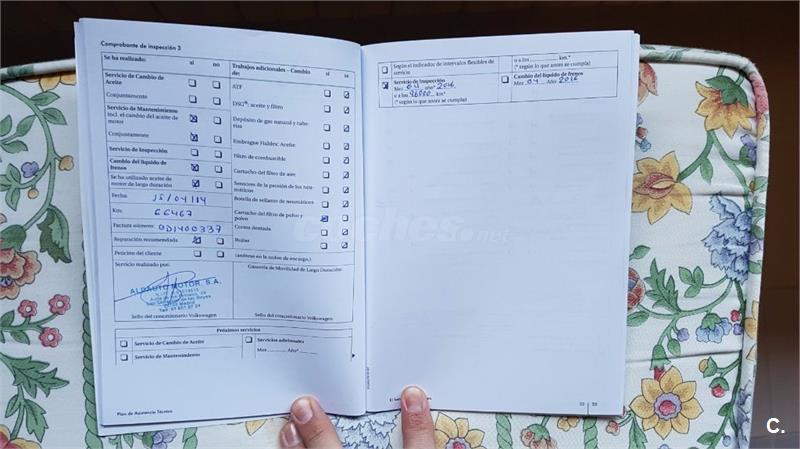 Comprobante de inspección 3
Se ha realizado: sí no
Servicio de Cambio de
Aceite
Conjuntamente
Servicio de Mantenimiento
Incl. el cambio del aceite de
motor
Conjuntamente
Servicio de Inspección
Cambio del líquido de
frenos
Se ha utilizado aceite de
motor de larga duración
Fecha: 15/04/14
Km: 66467
Factura número: OD1400337
Reparación recomendada
Petición del cliente
Servicio realizado por:
ALDAUTO MOTOR, S.A.
Sello del concesionario Volkswagen
Trabajos adicionales - Cambio
de: sí no
ATF
DSG®: aceite y filtro
Depósito de gas natural y tube-
rías
Embrague Haldex: Aceite
Filtro de combustible
Cartucho del filtro de aire
Sensores de la presión de los neu-
máticos
Botella de sellante de neumáticos
Cartucho del filtro de polvo y
polen
Correa dentada
Bujías
(anótese en la orden de encargo.)
Garantía de Movilidad de Larga Duración:
Sello del concesionario Volkswagen
Próximos servicios
Servicio de Cambio de Aceite
Servicio de Mantenimiento
Servicios adicionales
Mes Año*
Plan de Asistencia Técnica
Según el indicador de intervalos flexibles de
servicio
Servicio de Inspección
Mes 04 año* 2016
o a los 96000 km.*
(* según lo que antes se cumpla)
o a los km.*
(* según lo que antes se cumpla)
Cambio del líquido de frenos
Mes 04 Año 2016
coches.net
C.